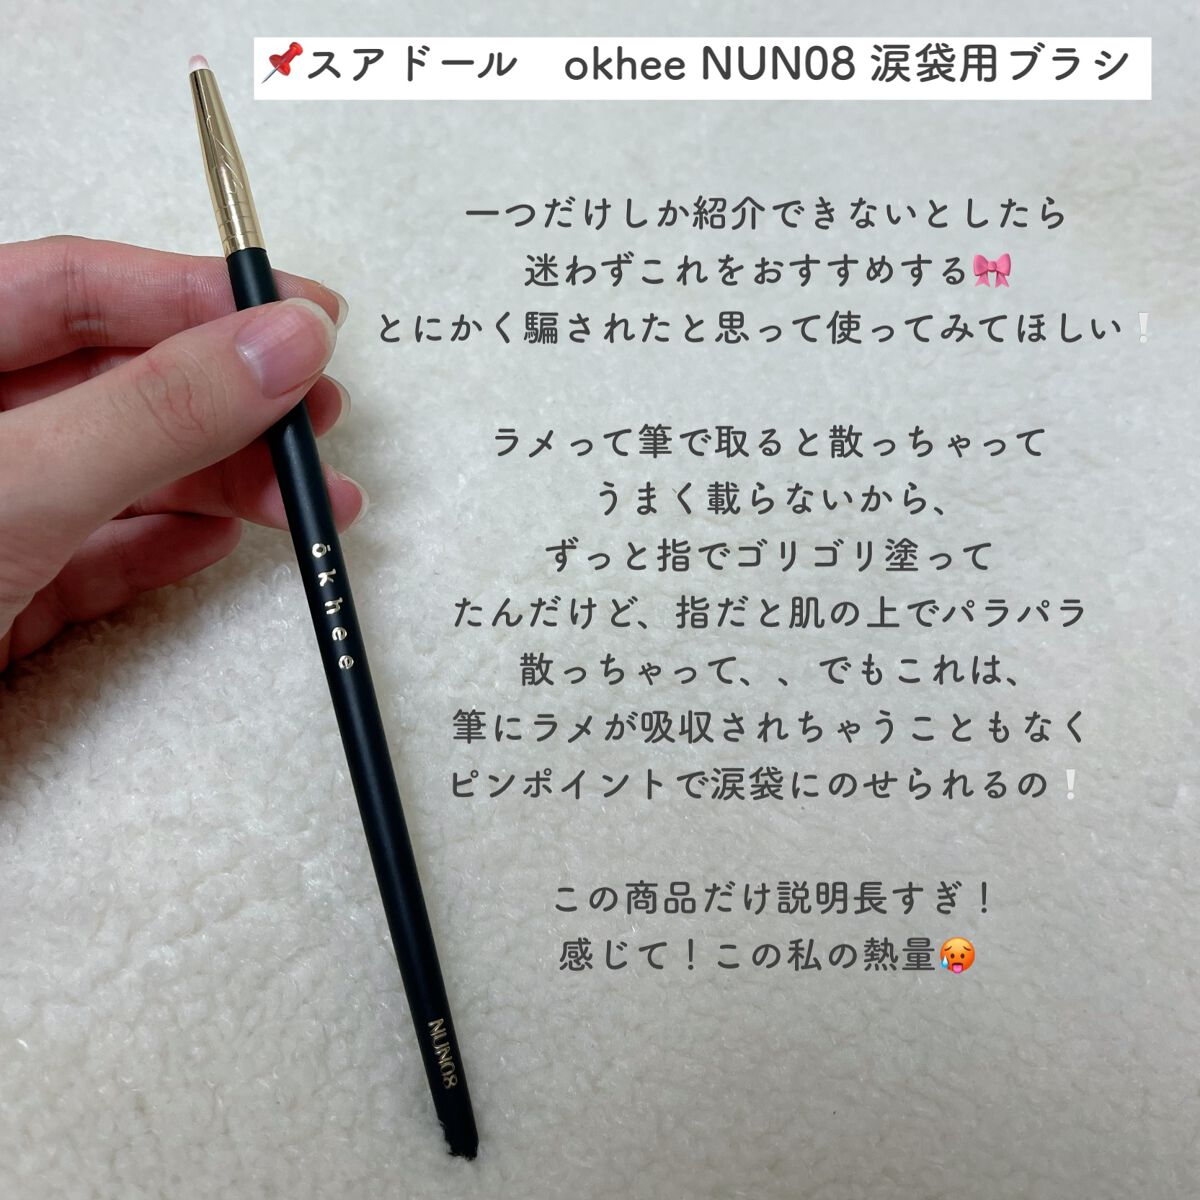 📌スアドール　okhee NUN08 涙袋用ブラシ
一つだけしか紹介できないとしたら
迷わずこれをおすすめする🎀
とにかく騙されたと思って使ってみてほしい❕
ラメって筆で取ると散っちゃって
うまく載らないから、
ずっと指でゴリゴリ塗って
たんだけど、指だと肌の上でパラパラ
散っちゃって、、でもこれは、
筆にラメが吸収されちゃうこともなく
ピンポイントで涙袋にのせられるの❕
この商品だけ説明長すぎ！
感じて！この私の熱量🥵
ōkhee
NUN08